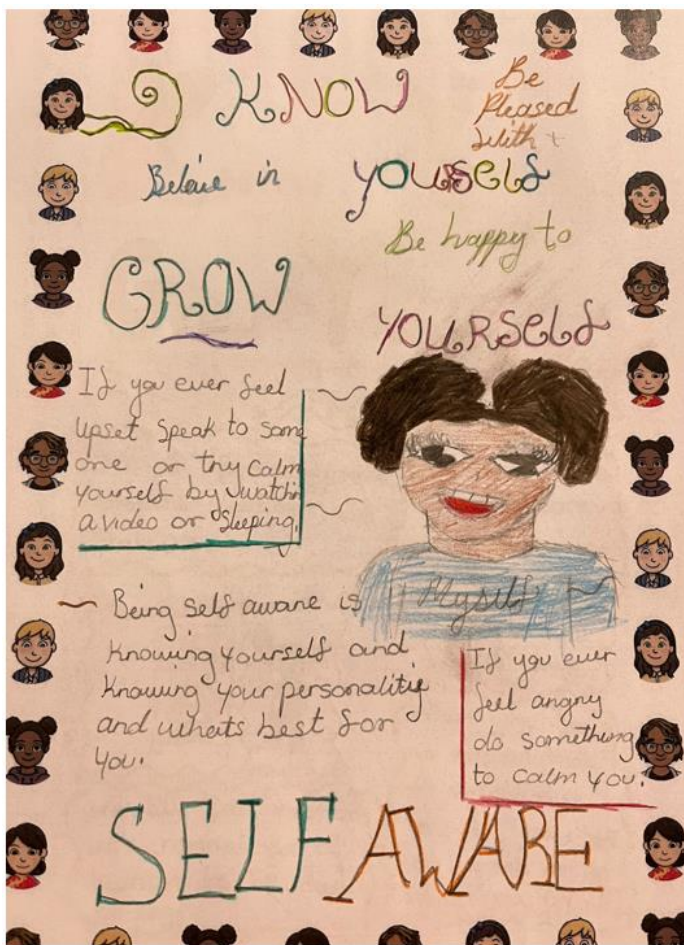 I KNOW
Be
Pleased
With +
Beleive in yourself
Be happy to
GROW
YOURSELF
If you ever feel
upset speak to some
one or try calm
yourself by watchin
a video or sleeping.
Myself
Being self aware is
knowing yourself and
knowing your personalitie
and whats best for
you.
If you ever
feel angry
do something
to calm you.
SELF AWARE